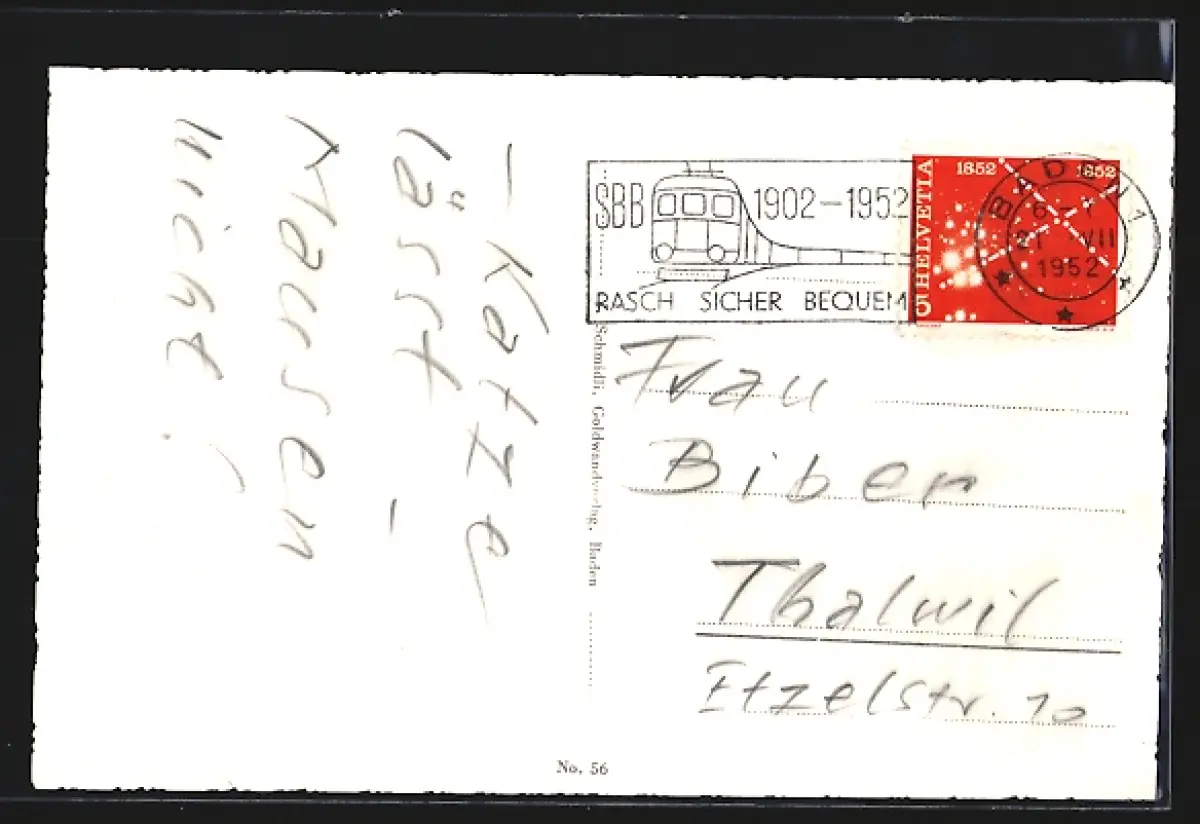 – Katze
lässt –
Mausen
nicht!
SBB 1902–1952
RASCH SICHER BEQUEM
1852 1852
HELVETIA
5
BADEN 1
21 VII
1952
Frau
Biber
Thalwil
Etzelstr. 10
Schmidli, Goldwandverlg. Baden
No. 56